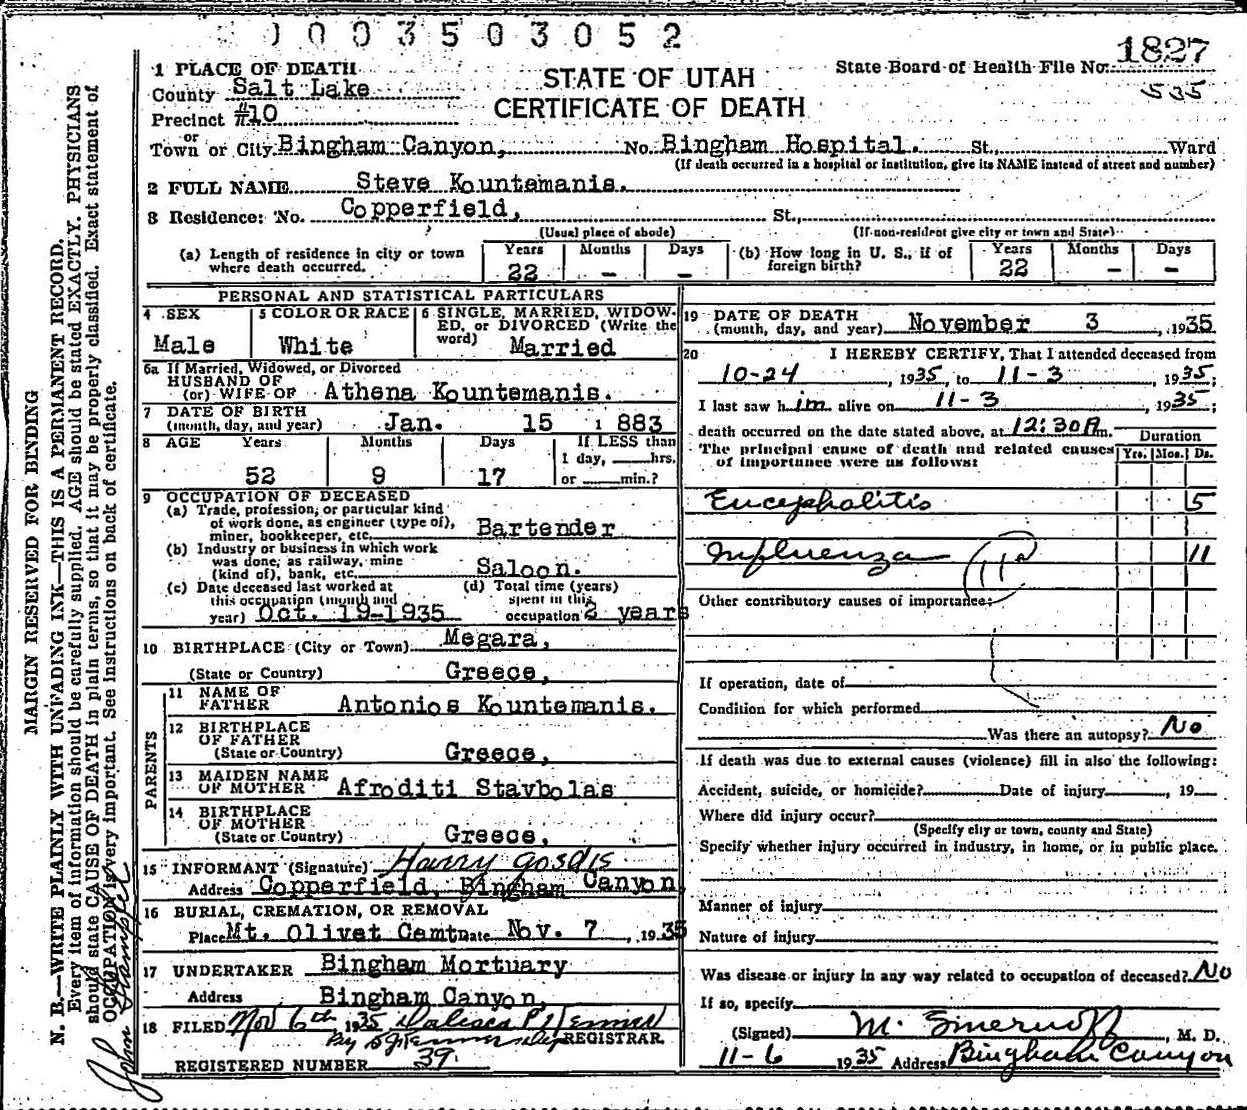 0003503052
1827
535
STATE OF UTAH
CERTIFICATE OF DEATH
State Board of Health File No.
1 PLACE OF DEATH
County Salt Lake
Precinct #10
or
Town or City Bingham Canyon, No. Bingham Hospital. St., Ward
(If death occurred in a hospital or institution, give its NAME instead of street and number)
2 FULL NAME Steve Kountemanis.
3 Residence: No. Copperfield, St.,
(Usual place of abode) (If non-resident give city or town and State)
(a) Length of residence in city or town where death occurred. Years 22 Months - Days -
(b) How long in U. S., if of foreign birth? Years 22 Months - Days -
PERSONAL AND STATISTICAL PARTICULARS
4 SEX Male
5 COLOR OR RACE White
6 SINGLE, MARRIED, WIDOWED, or DIVORCED (Write the word) Married
6a If Married, Widowed, or Divorced
HUSBAND OF
(or) WIFE OF Athena Kountemanis.
7 DATE OF BIRTH
(month, day, and year) Jan. 15 1883
8 AGE Years 52 Months 9 Days 17 If LESS than 1 day, hrs. or min.?
9 OCCUPATION OF DECEASED
(a) Trade, profession, or particular kind of work done, as engineer (type of), miner, bookkeeper, etc. Bartender
(b) Industry or business in which work was done, as railway, mine (kind of), bank, etc. Saloon.
(c) Date deceased last worked at this occupation (month and year) Oct. 19-1935
(d) Total time (years) spent in this occupation 2 years
10 BIRTHPLACE (City or Town) Megara,
(State or Country) Greece,
PARENTS
11 NAME OF FATHER Antonios Kountemanis.
12 BIRTHPLACE OF FATHER
(State or Country) Greece,
13 MAIDEN NAME OF MOTHER Afroditi Stavbolas
14 BIRTHPLACE OF MOTHER
(State or Country) Greece,
15 INFORMANT (Signature) Harry Gosdis
Address Copperfield, Bingham Canyon,
16 BURIAL, CREMATION, OR REMOVAL
Place Mt. Olivet Cemt Date Nov. 7, 1935
17 UNDERTAKER Bingham Mortuary
Address Bingham Canyon,
18 FILED Nov 6th, 1935
REGISTRAR
REGISTERED NUMBER 39
19 DATE OF DEATH
(month, day, and year) November 3, 1935
20 I HEREBY CERTIFY, That I attended deceased from
10-24, 1935, to 11-3, 1935;
I last saw him alive on 11-3, 1935;
death occurred on the date stated above, at 12:30 A m.
Duration
The principal cause of death and related causes of importance were as follows: Yrs. Mos. Ds.
Encephalitis 5
Influenza 11
11a
Other contributory causes of importance:
If operation, date of
Condition for which performed
Was there an autopsy? No
If death was due to external causes (violence) fill in also the following:
Accident, suicide, or homicide? Date of injury, 19
Where did injury occur?
(Specify city or town, county and State)
Specify whether injury occurred in industry, in home, or in public place.
Manner of injury
Nature of injury
Was disease or injury in any way related to occupation of deceased? No
If so, specify
(Signed) M. Smernoff, M. D.
11-6 1935 Address Bingham Canyon
MARGIN RESERVED FOR BINDING
N. B.—WRITE PLAINLY WITH UNFADING INK—THIS IS A PERMANENT RECORD.
Every item of information should be carefully supplied. AGE should be stated EXACTLY. PHYSICIANS
should state CAUSE OF DEATH in plain terms, so that it may be properly classified. Exact statement of
OCCUPATION is very important. See instructions on back of certificate.
John